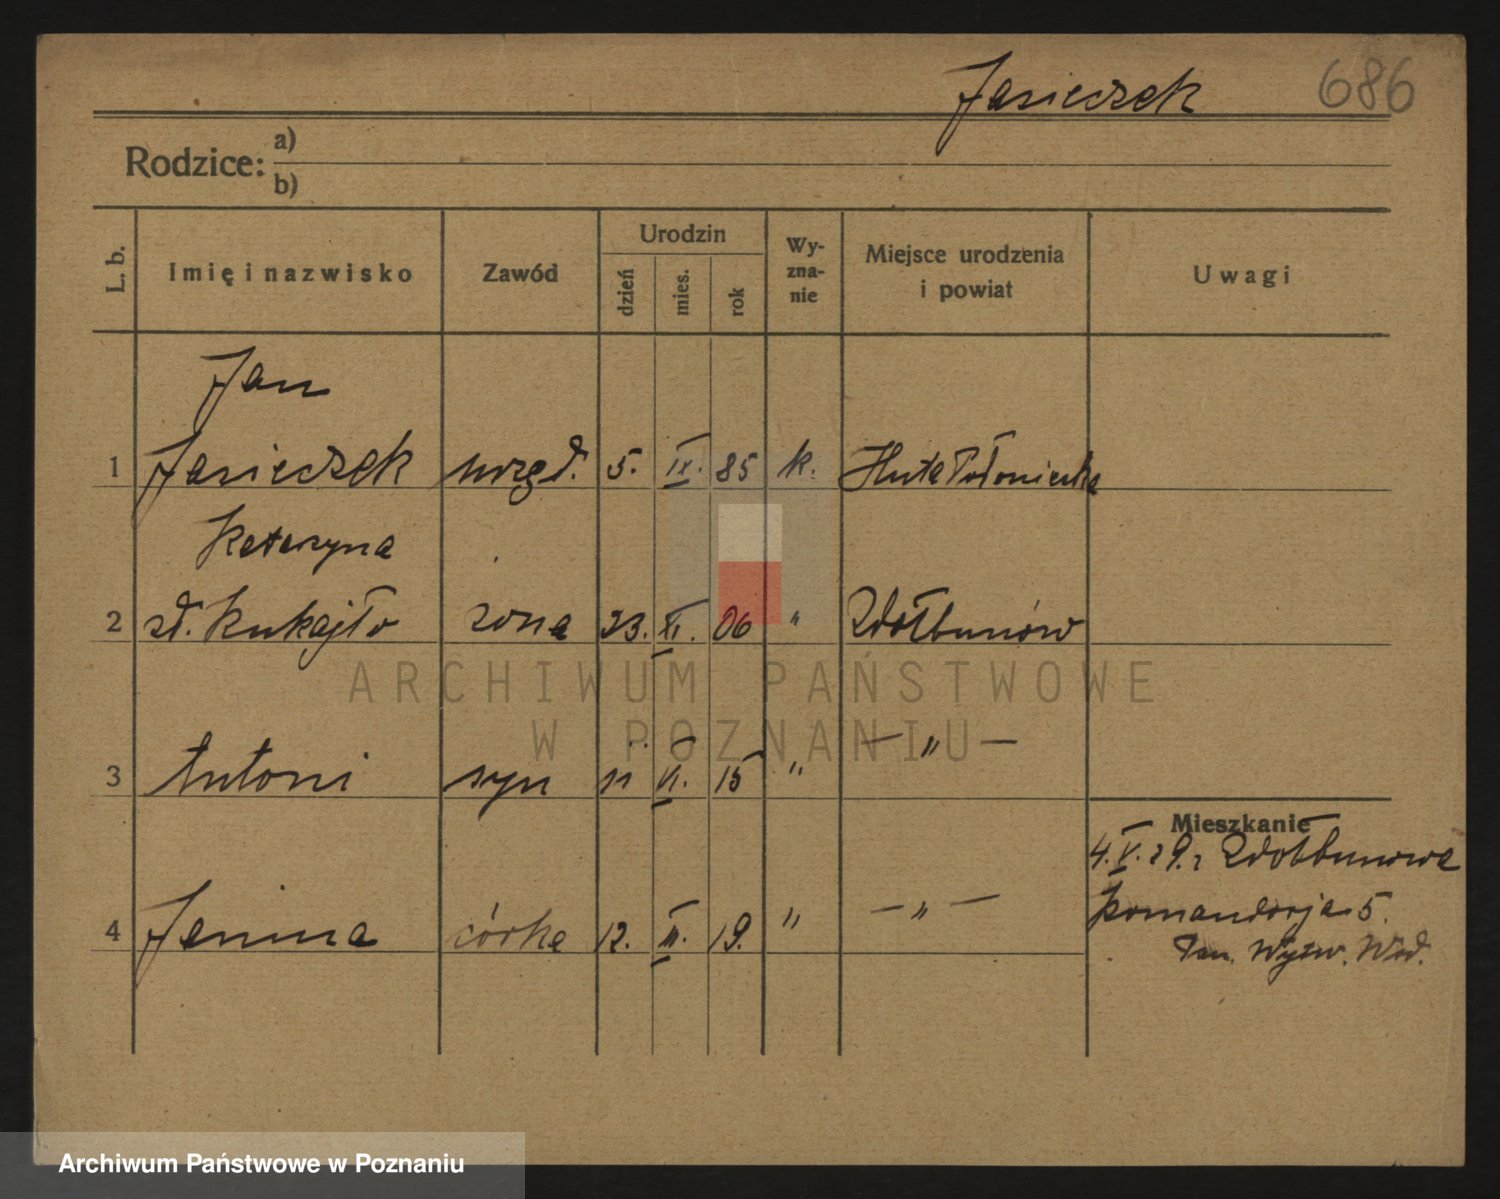 Jasieczek 686
Rodzice: a)
b)
L. b. Imię i nazwisko Zawód Urodzin dzień mies. rok Wy-zna-nie Miejsce urodzenia i powiat Uwagi
Jan
1 Jasieczek urzęd. 5. IX. 85 k. Huta Połoniecka
Katarzyna
2 zd. Kukajło żona 23. XI. 06 " Zdołbunów
3 Antoni syn 11 VI. 15 " — " —
Mieszkanie
4. V. 29. z Zdołbunowa
4 Janina córka 12. III. 19. " — " —
Komandorja 5.
Pań. Wytw. Wód.
ARCHIWUM PAŃSTWOWE
W POZNANIU
Archiwum Państwowe w Poznaniu